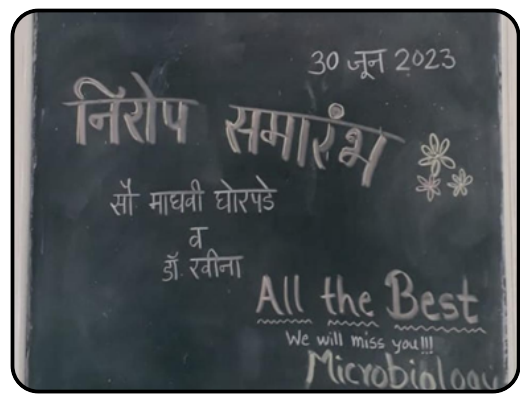 30 जून 2023
निरोप समारंभ
सौ माधवी घोरपडे
व
डॉ. रवीना
All the Best
We will miss you!!!
Microbiology